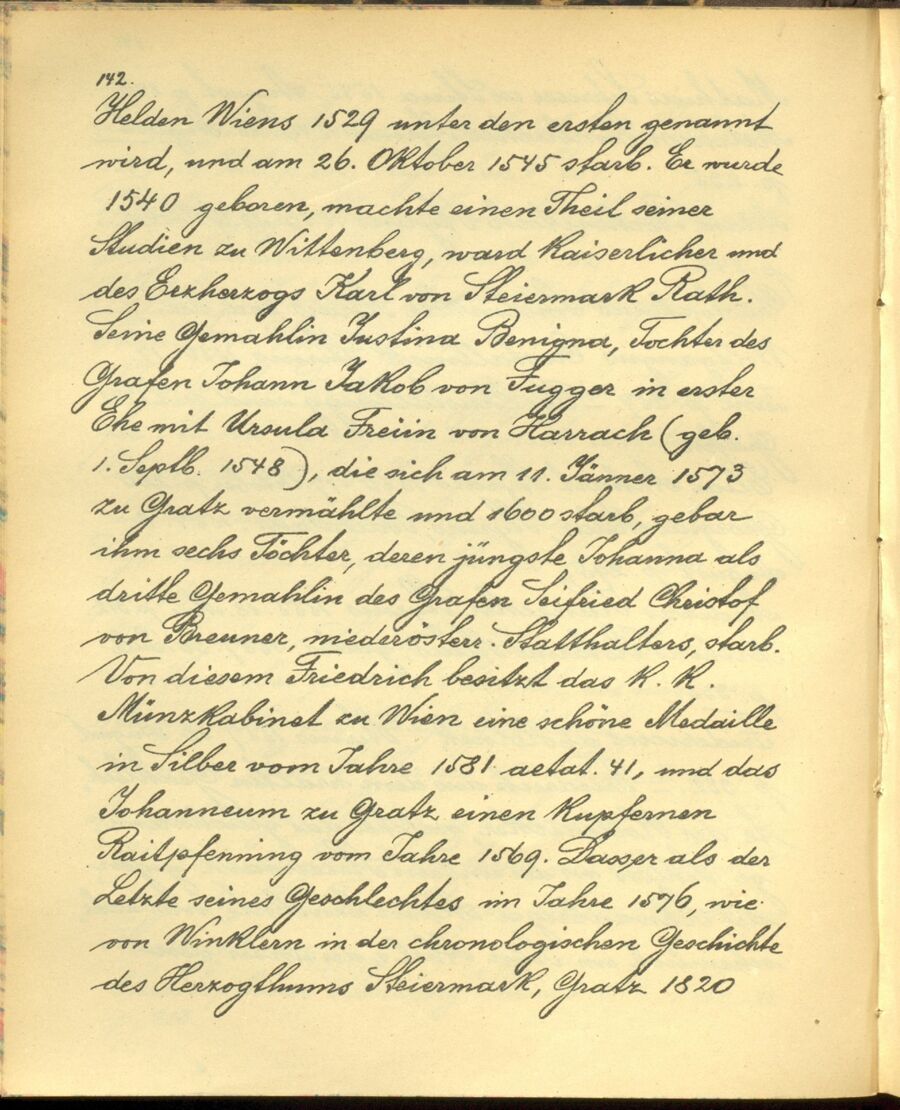 142.
Helden Wiens 1529 unter den ersten genannt
wird, und am 26. Oktober 1545 starb. Er wurde
1540 geboren, machte einen Theil seiner
Studien zu Wittenberg, ward Kaiserlicher und
des Erzherzogs Karl von Steiermark Rath.
Seine Gemahlin Justina Benigna, Tochter des
Grafen Johann Jakob von Fugger in erster
Ehe mit Ursula Freiin von Harrach (geb.
1. Septb. 1548), die sich am 11. Jänner 1573
zu Gratz vermählte und 1600 starb, gebar
ihm sechs Töchter, deren jüngste Johanna als
dritte Gemahlin des Grafen Seifried Christof
von Breuner, niederösterr. Statthalters, starb.
Von diesem Friedrich besitzt das K. K.
Münzkabinet zu Wien eine schöne Medaille
in Silber vom Jahre 1581 aetat. 41, und das
Johanneum zu Gratz einen Kupfernen
Raitpfenning vom Jahre 1569. Dasser als der
Letzte seines Geschlechtes im Jahre 1576, wie
von Winklern in der chronologischen Geschichte
des Herzogthums Steiermark, Gratz 1820